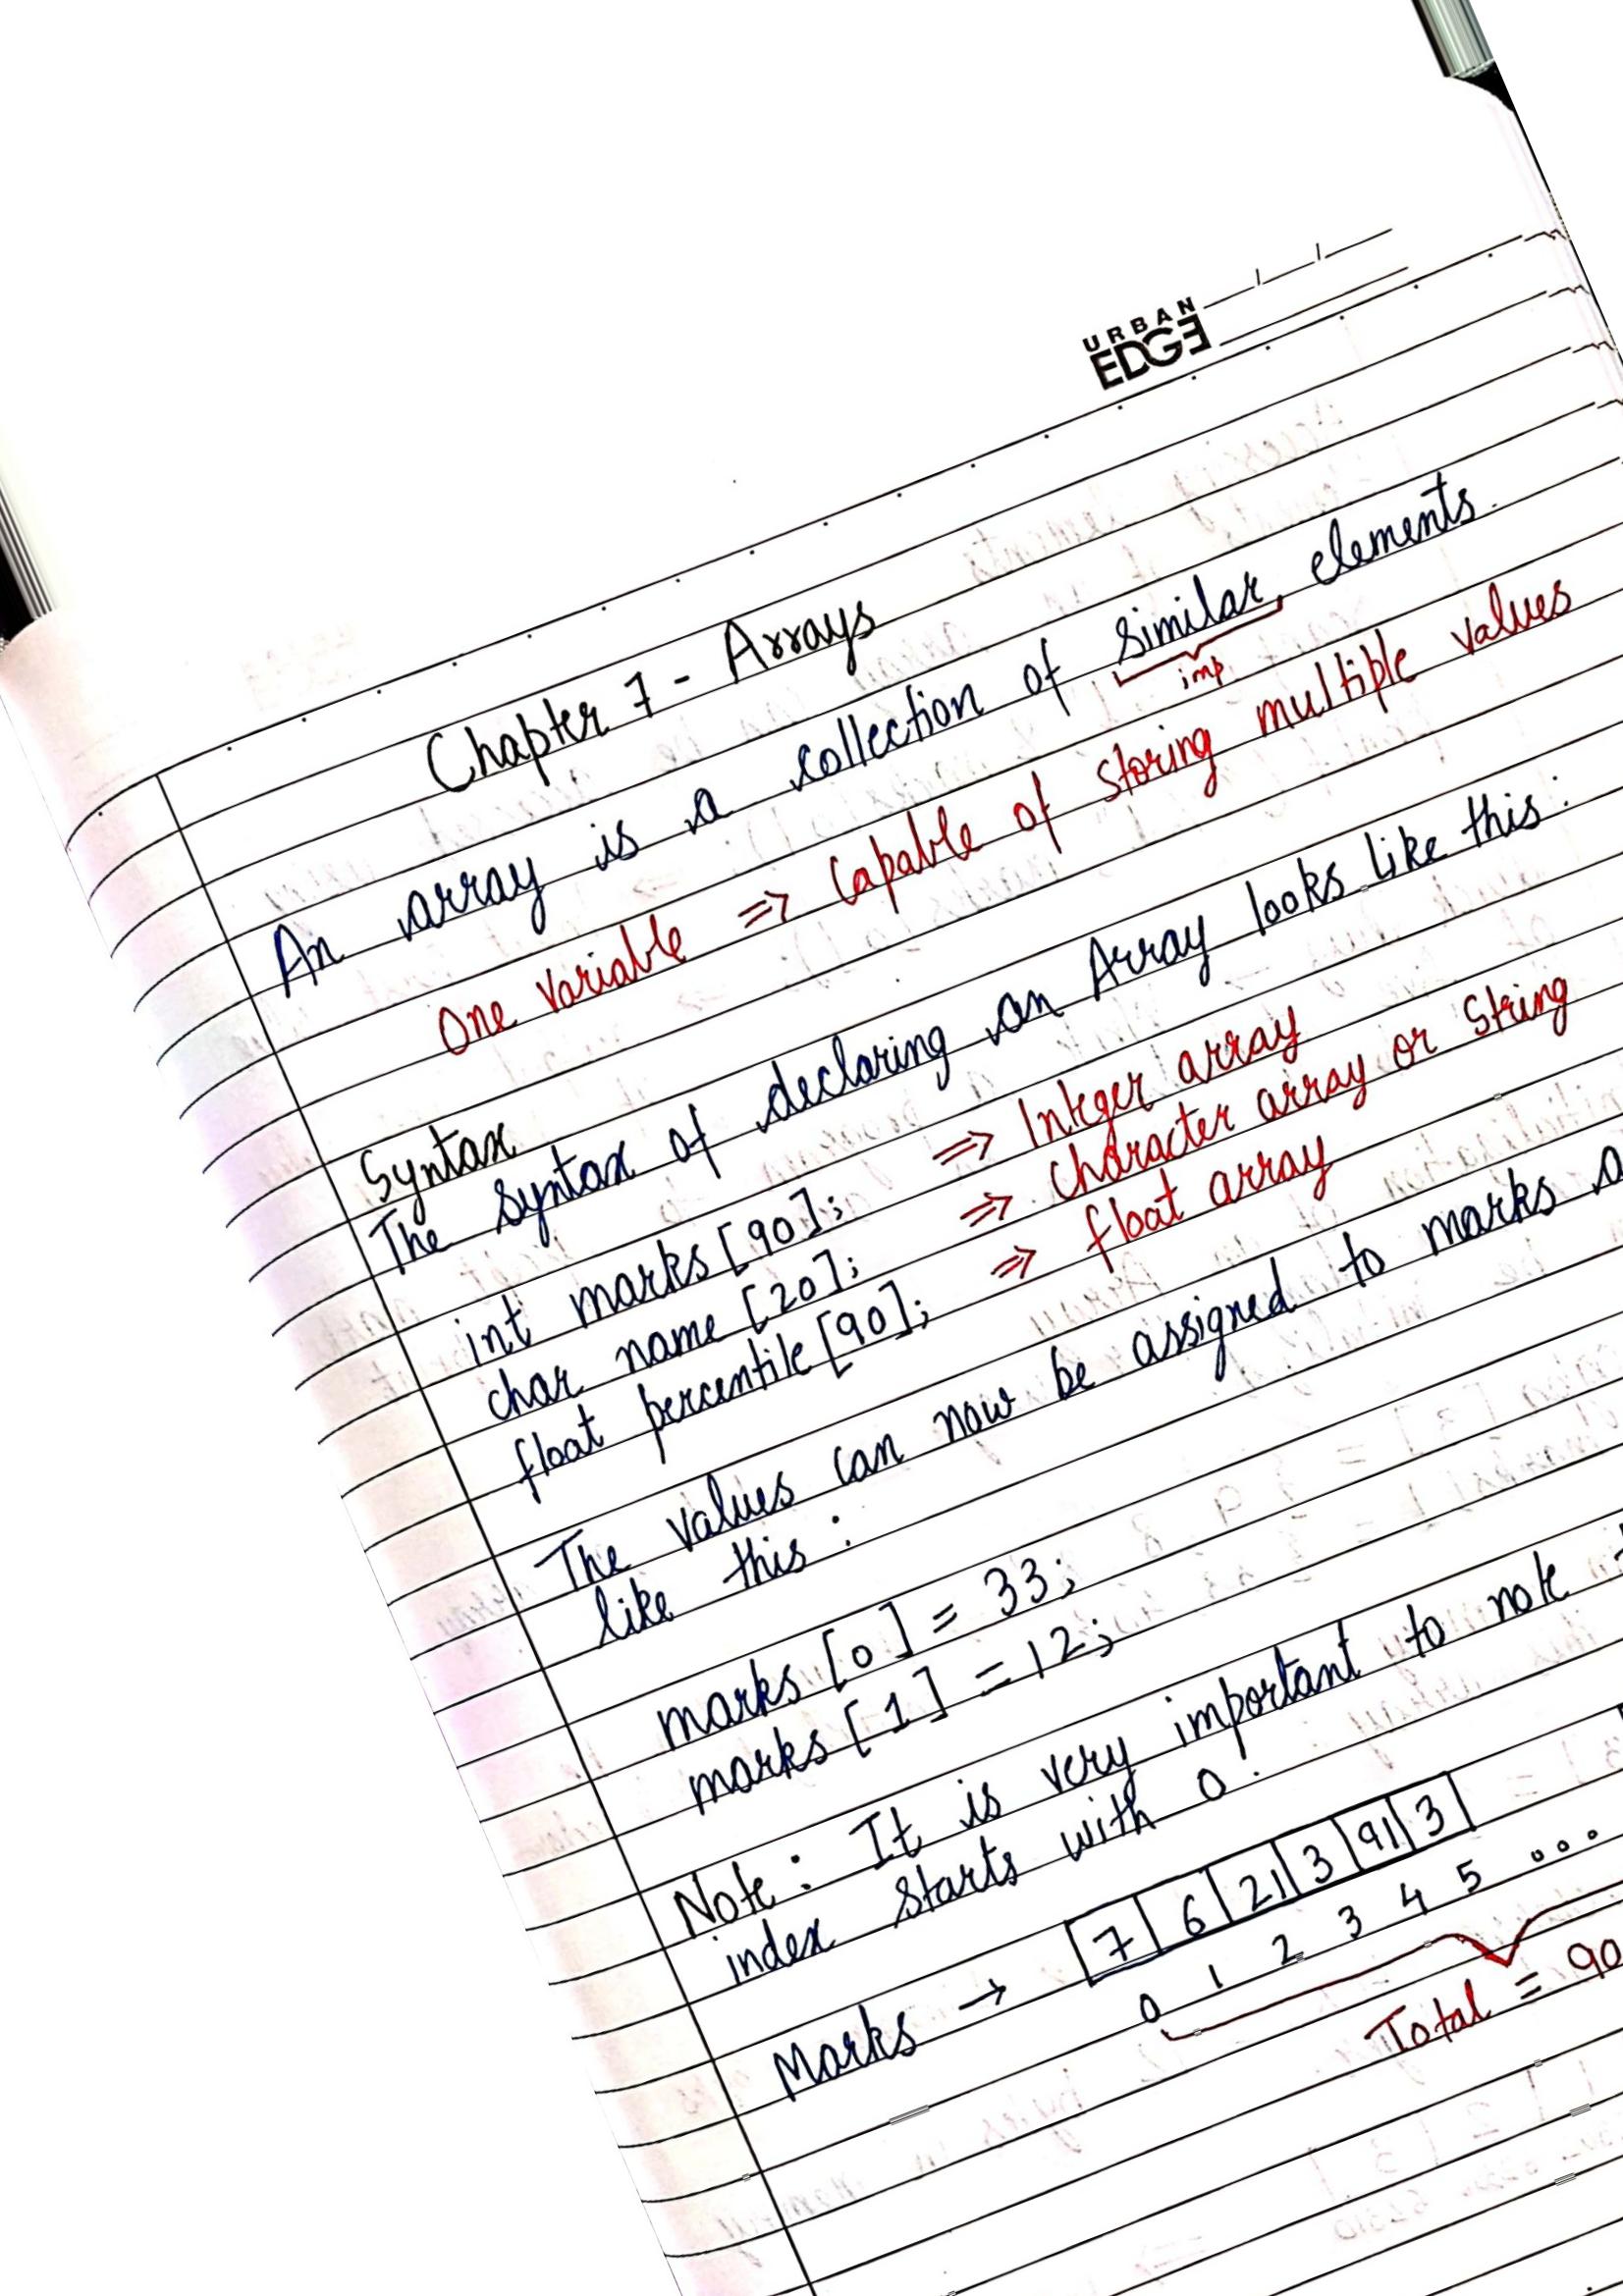 URBAN
EDGE
Chapter 7 - Arrays
An array is a collection of similar elements.
imp
One variable ⇒ Capable of storing multiple values
Syntax
The syntax of declaring an Array looks like this:
int marks [90]; ⇒ Integer array
char name [20]; ⇒ character array or string
float percentile [90]; ⇒ float array
The values can now be assigned to marks
like this :
marks [0] = 33;
marks [1] = 12;
Note : It is very important to note
index starts with 0.
Marks → 7 6 21 3 91 3
0 1 2 3 4 5 ...
Total = 90